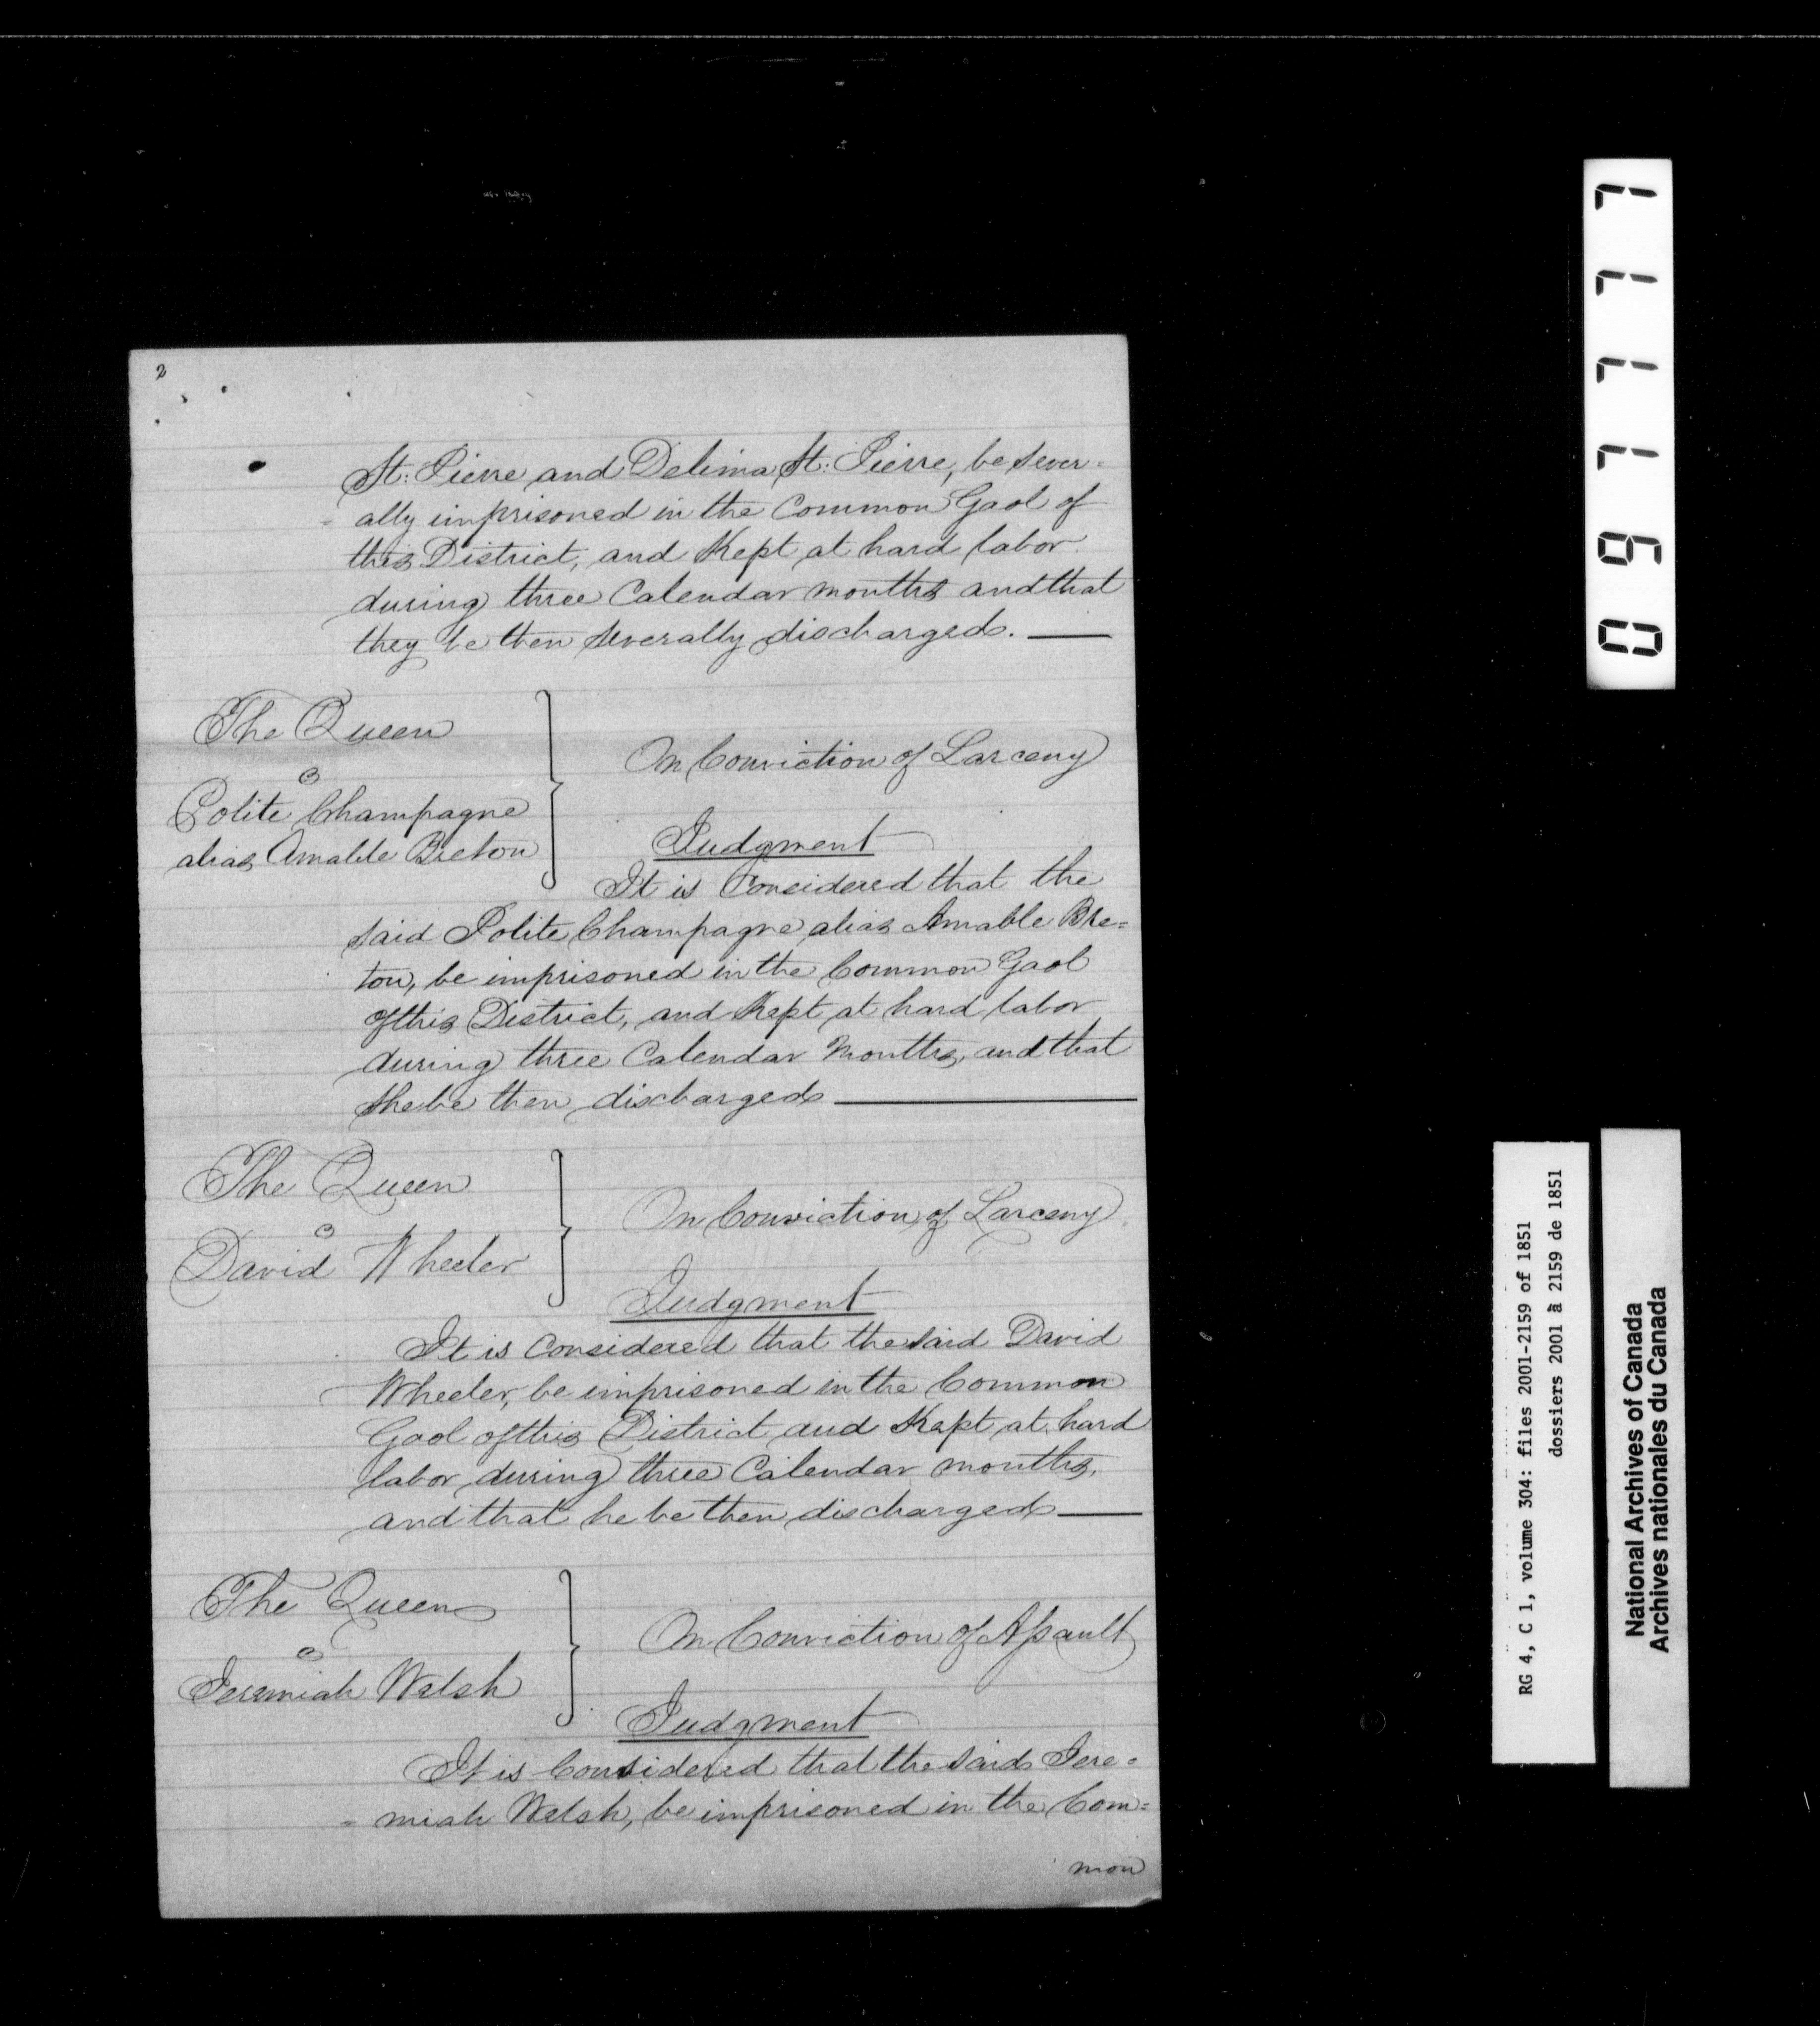 2
St: Pierre and Delima St: Pierre, be sever=
= ally imprisoned in the Common Gaol of
this District, and Kept at hard labor
during three Calendar months and that
they be then severally discharged. —
The Queen
On Conviction of Larceny
Polite Champagne
alias Amable Breton
Judgment
It is Considered that the
said Polite Champagne alias Amable Bre=
ton, be imprisoned in the Common Gaol
of this District, and Kept at hard labor
during three Calendar Months, and that
she be then discharged —
The Queen
On Conviction of Larceny
David Wheeler
Judgment
It is Considered that the said David
Wheeler, be imprisoned in the Common
Gaol of this District and Kept at hard
labor during three Calendar months,
and that he be then discharged —
The Queen
On Conviction of Assault
Jeremiah Walsh
Judgment
It is Considered that the said Jere=
= miah Walsh, be imprisoned in the Com=
mon
097777
RG 4, C 1, volume 304: files 2001-2159 of 1851
dossiers 2001 à 2159 de 1851
National Archives of Canada
Archives nationales du Canada